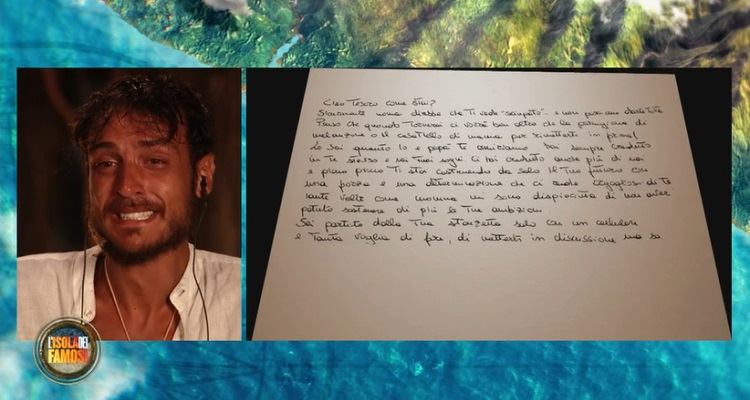 Ciao Tesoro come stai?
Sicuramente nonna direbbe che ti vede "sciupato" e non posso darle torto
Penso che quando tornerai ci vorrà ben altro che la parmigiana di
melanzane o il casatiello di mamma per rimetterti in forma!
Lo sai quanto io e papà ti amiamo hai sempre creduto
in te stesso e nei tuoi sogni ci hai creduto anche più di noi
e piano piano ti stai costruendo da solo il tuo futuro con
una forza e una determinazione che ci rende orgogliosi di te
tante volte come mamma mi sono dispiaciuta di non aver
potuto sostenere di più le tue ambizioni
Sei partito dalla tua stanzetta solo con un cellulare
e tanta voglia di fare, di metterti in discussione ma se
L'ISOLA DEI
FAMOSI